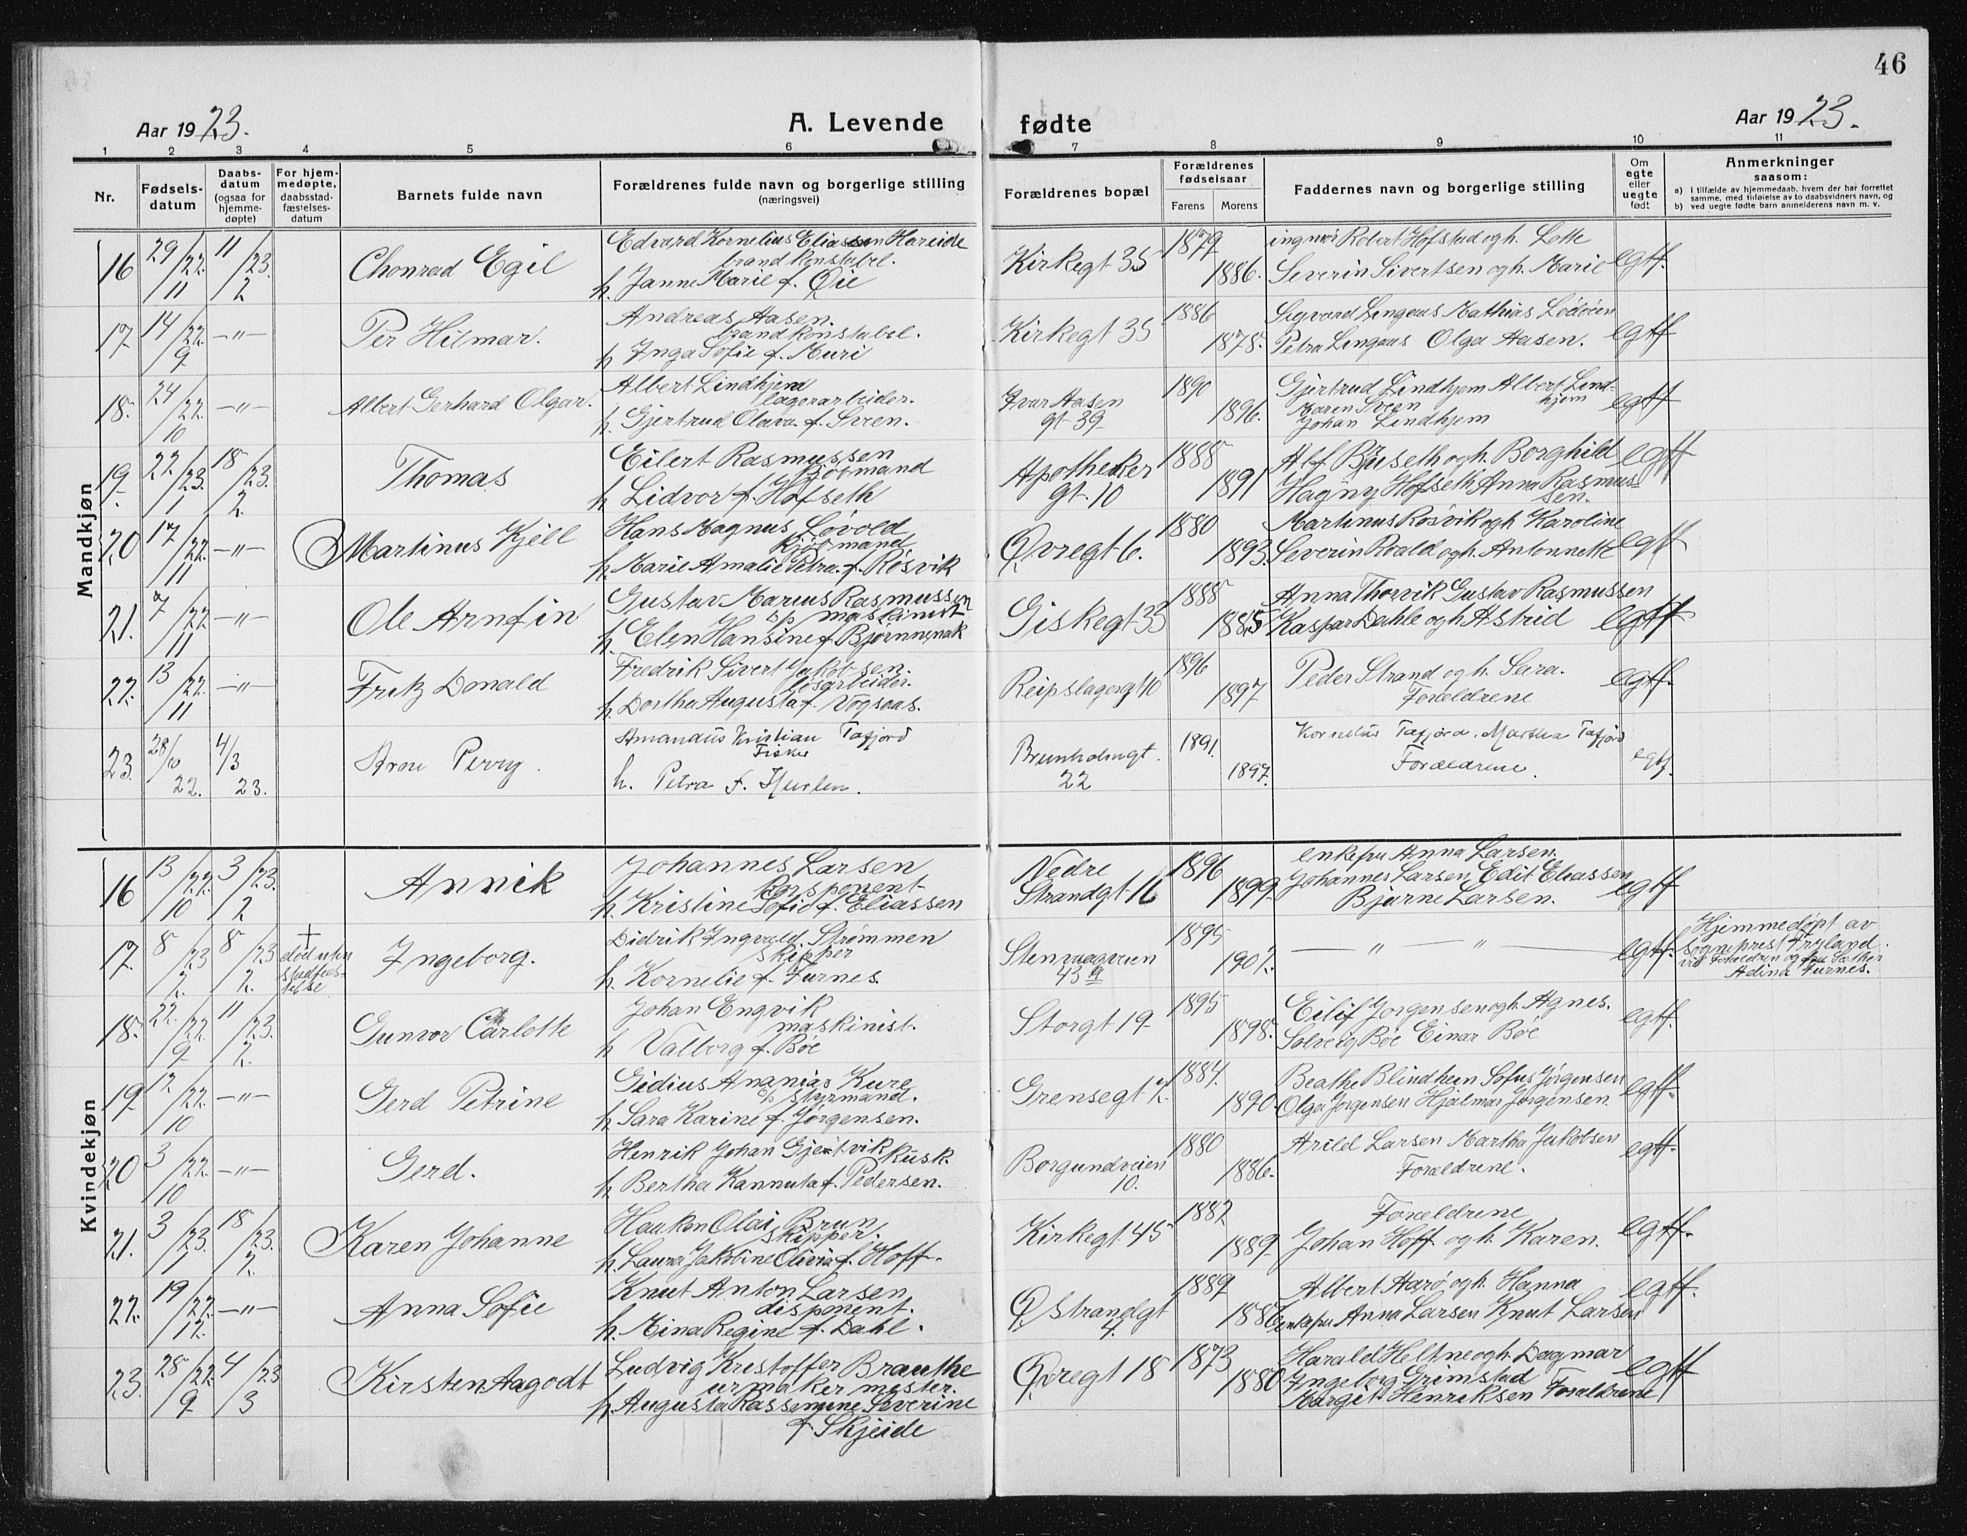 46
Aar 1923. A. Levende fødte Aar 1923.
1 2 3 4 5 6 7 8 9 10 11
Nr. Fødsels-datum Daabs-datum (ogsaa for hjemme-døpte) For hjem-medøpte, daabsstad-fæstelses-datum Barnets fulde navn Forældrenes fulde navn og borgerlige stilling (næringsvei) Forældrenes bopæl Forældrenes fødselsaar Farens Morens Faddernes navn og borgerlige stilling Om egte eller uegte født Anmerkninger saasom:
a) i tilfælde av hjemmedaab, hvem der har forrettet samme, med tilføielse av to daabsvidners navn, og
b) ved uegte fødte barn anmelderens navn m. v.
Mandkjøn
16 29/11 22. 11/2 23. Chonrad Egil Edvard Kornelius Eliassen Hareide Kirkegt 35 1879 ingniør Robert Hofstad og h. Lette egtf.
brandkonstabel.
h. Janne Marie f. Øie 1886. Severin Sivertsen og h. Marie
17 14/9 22. -"- Per Hilmar. Andreas Aasen. Kirkegt 35 1886 Sigvard Lingaas Mathias Lødøen egtf
brandkonstabel.
h Inga Sofie f. Muri 1878. Petra Lingaas Olga Aasen.
18. 24/10 22. -"- Albert Gerhard Olgar. Albert Lindhjem Ivar Aasen gt 39 1890 Gjertrud Lindhjem Albert Lindhjem egtf
lagerarbeider.
h. Gjertrud Olava f. Sven. 1896. Maren Sveen
Johan Lindhjem
19. 22/1 23. 18/2 23. Thomas Eilert Rasmussen Apotheker gt. 10 1888 Alf Bjuseth og h. Borghild egtf
kjøbmand
h Lidvor f. Hofseth 1891 Hagny Hofseth Anna Rasmussen.
20 17/11 22. -"- Martinus Kjell Hans Magnus Løvold Øvregt 6. 1880 Martinus Rosvik og h Karoline egtf
kjøbmand
h. Marie Amalie Petra f. Rosvik 1893. Severin Roald og h. Antonnette
21. 7/11 22. -"- Ole Arnfin Gustav Marius Rasmussen Giskegt 35 1888 Anna Thorvik Gustav Rasmussen egtf
d/s maskinist
h. Elen Hansine f. Bjørnnsnak 1885 Kaspar Dahle og h Astrid
22. 13/11 22. -"- Fritz Donald Fredrik Sivert Jakobsen. Reipslagergt 10 1896 Peder Strand og h. Sara. egtf.
løsarbeider.
h Dorthea Augusta f. Vogsaas. 1897 Forældrene
23. 28/10 22. 4/3 23. Arne Perry. Amandus Kristian Tafjord Brunholmgt. 22 1891. Kornelius Tafjord. Martha Tafjord egtf.
Fisker
h. Petra f. Hurlen. 1897. Forældrene.
Kvindekjøn
16 13/10 22. 3/2 23. Annik Johannes Larsen Nedre Strandgt 16 1896 enkefru Anna Larsen. egtf
Korsponent
h Kristine Sofie f. Eliassen 1899. Johannes Larsen, Edit Eliassen
Bjarne Larsen.
17. 8/2 23 8/2 23 † død uten stadfæstelse Ingeborg. Didrik Ingvald Strømmen Stenvaagveien 43 a 1895 — " — " — egtf. Hjemmedøpt av
skipper sogneprest Fryland.
h. Kornelie f. Furnes. 1901. vid. Forældren og fru Sæther
Adina Furnes.
18. 22/9 22. 11/2 23. Gunvor Carlotte Johan Engvik Storgt 19 1895 Eilif Jorgensen og h. Agnes. egtf.
maskinist.
h Valborg f. Böe 1898. Solveig Böe Einar Böe
19. 12/10 22. -"- Gerd Petrine Gidius Ananias Kure Grensegt 7. 1884. Beathe Blindheim Sofus Jørgensen egtf.
d/s styrmand.
h Sara Karine f. Jørgensen. 1890. Olga Jorgensen Hjalmar Jorgensen.
20 3/10 22. -"- Gerd. Henrik Johan Gjertvik kusk. Borgundveien 10. 1880 Arild Larsen Martha Jakobsen egtf.
h Bertha Kannuta f. Pedersen. 1886. Forældrene.
21. 3/1 23. 18/2 23. Karen Johanne Hauken Olai Brun Kirkegt 45 1882 Forældrene egtf.
skipper.
h. Laura Jakobine Olivia f. Hoff. 1889 Johan Hoff og h. Karen.
22. 19/12 22. -"- Anna Sofie Knut Anton Larsen Ø Strandgt 4. 1889 Albert Aarø og h. Hanna egtf.
disponent.
h. Mina Regine f. Dahl. 1886 enkefru Anna Larsen Knut Larsen
23. 28/9 22. 4/3 23 Kirsten Aagodt Ludvig Kristoffer Brauthe Øvregt 18 1873 Harald Heltne og h. Dagmar egtf
urmaker mester.
h. Augusta Rassemine Severine 1880 Ingeborg Grimstad
f Skjeide Margit Henriksen Forældrene